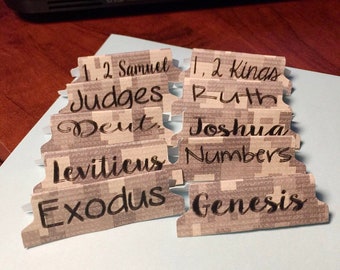 1, 2 Samuel
1, 2 Kings
Judges
Ruth
Deut.
Joshua
Leviticus
Numbers
Exodus
Genesis